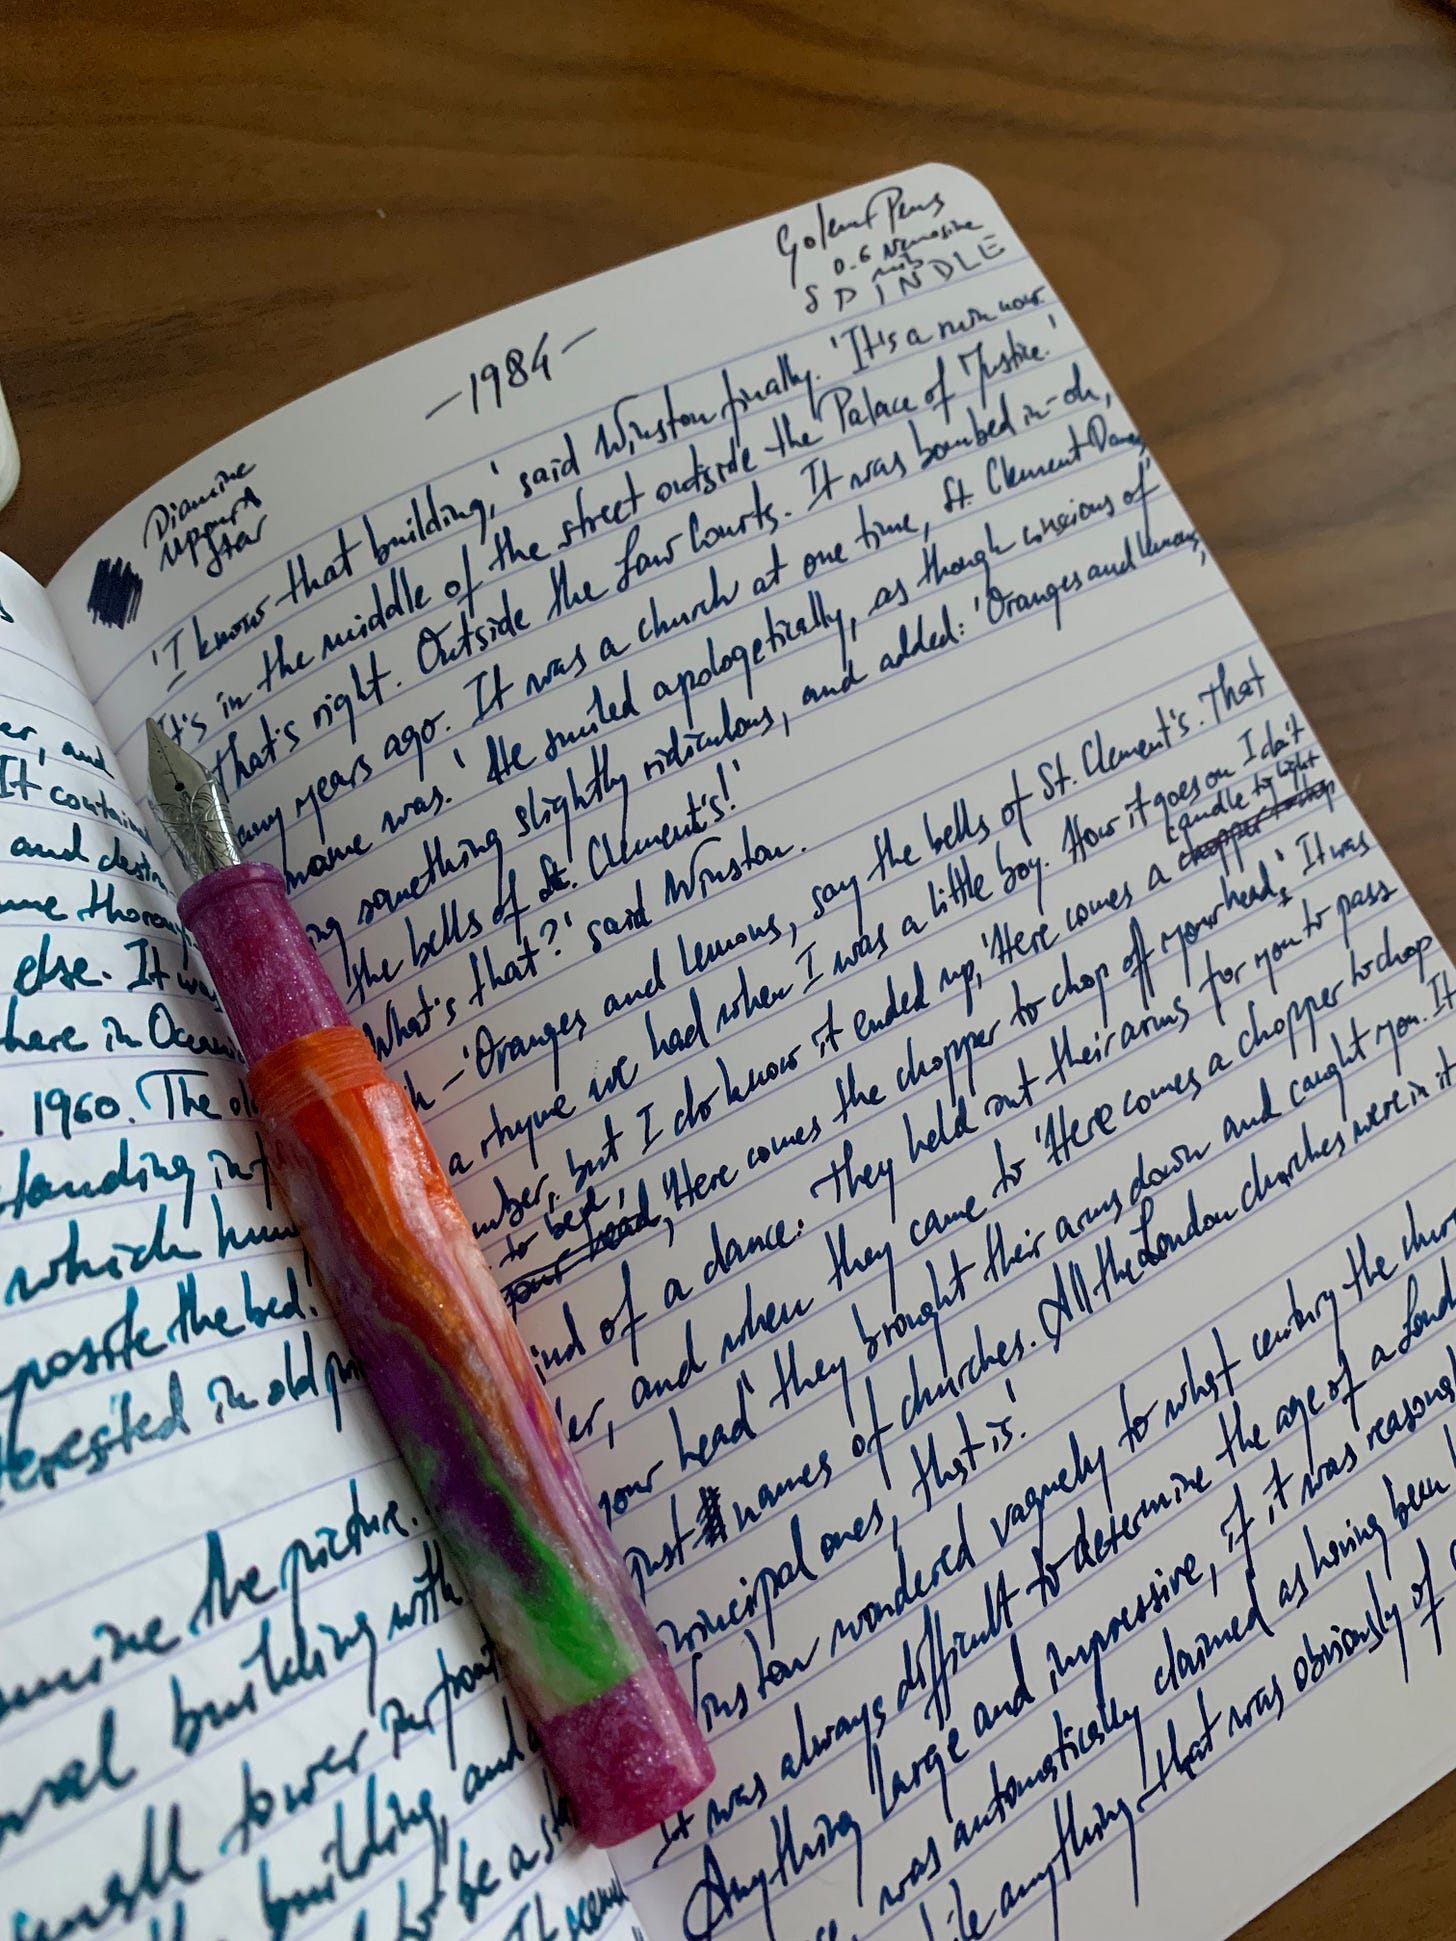 er, and
It contain
and destr
me thorou
else. It was
here in Ocean
1960. The ol
tanding in f
which hun
posite the bed.'
terested in old p
mine the picture.
val building with
small tower in front
building, and
be a st
It seem
Golem Pens
0.6 Nemosine
nib
SPINDLE
-1984-
Diamine
Upon A
Star
'I know that building,' said Winston finally. 'It's a ruin now.
It's in the middle of the street outside the Palace of Justice.'
that's right. Outside the Law Courts. It was bombed in-oh,
any years ago. It was a church at one time, St. Clement Danes
name was.' He smiled apologetically, as though conscious of
ing something slightly ridiculous, and added: 'Oranges and lemons,
the bells of St. Clement's!'
What's that?' said Winston.
h - 'Oranges and lemons, say the bells of St. Clement's. That
a rhyme we had when I was a little boy. How it goes on I don't
candle to light
mber, but I do know it ended up, 'Here comes a chopper to chop
to bed,
your head, 'Here comes the chopper to chop off your head.' It was
ind of a dance. They held out their arms for you to pass
er, and when they came to 'Here comes a chopper to chop
your head' they brought their arms down and caught you. It
just names of churches. All the London churches were in it
rincipal ones, that is.'
Winston wondered vaguely to what century the chur
It was always difficult to determine the age of a Lond
Anything large and impressive, if it was reasona
was automatically claimed as having been
ile anything that was obviously of